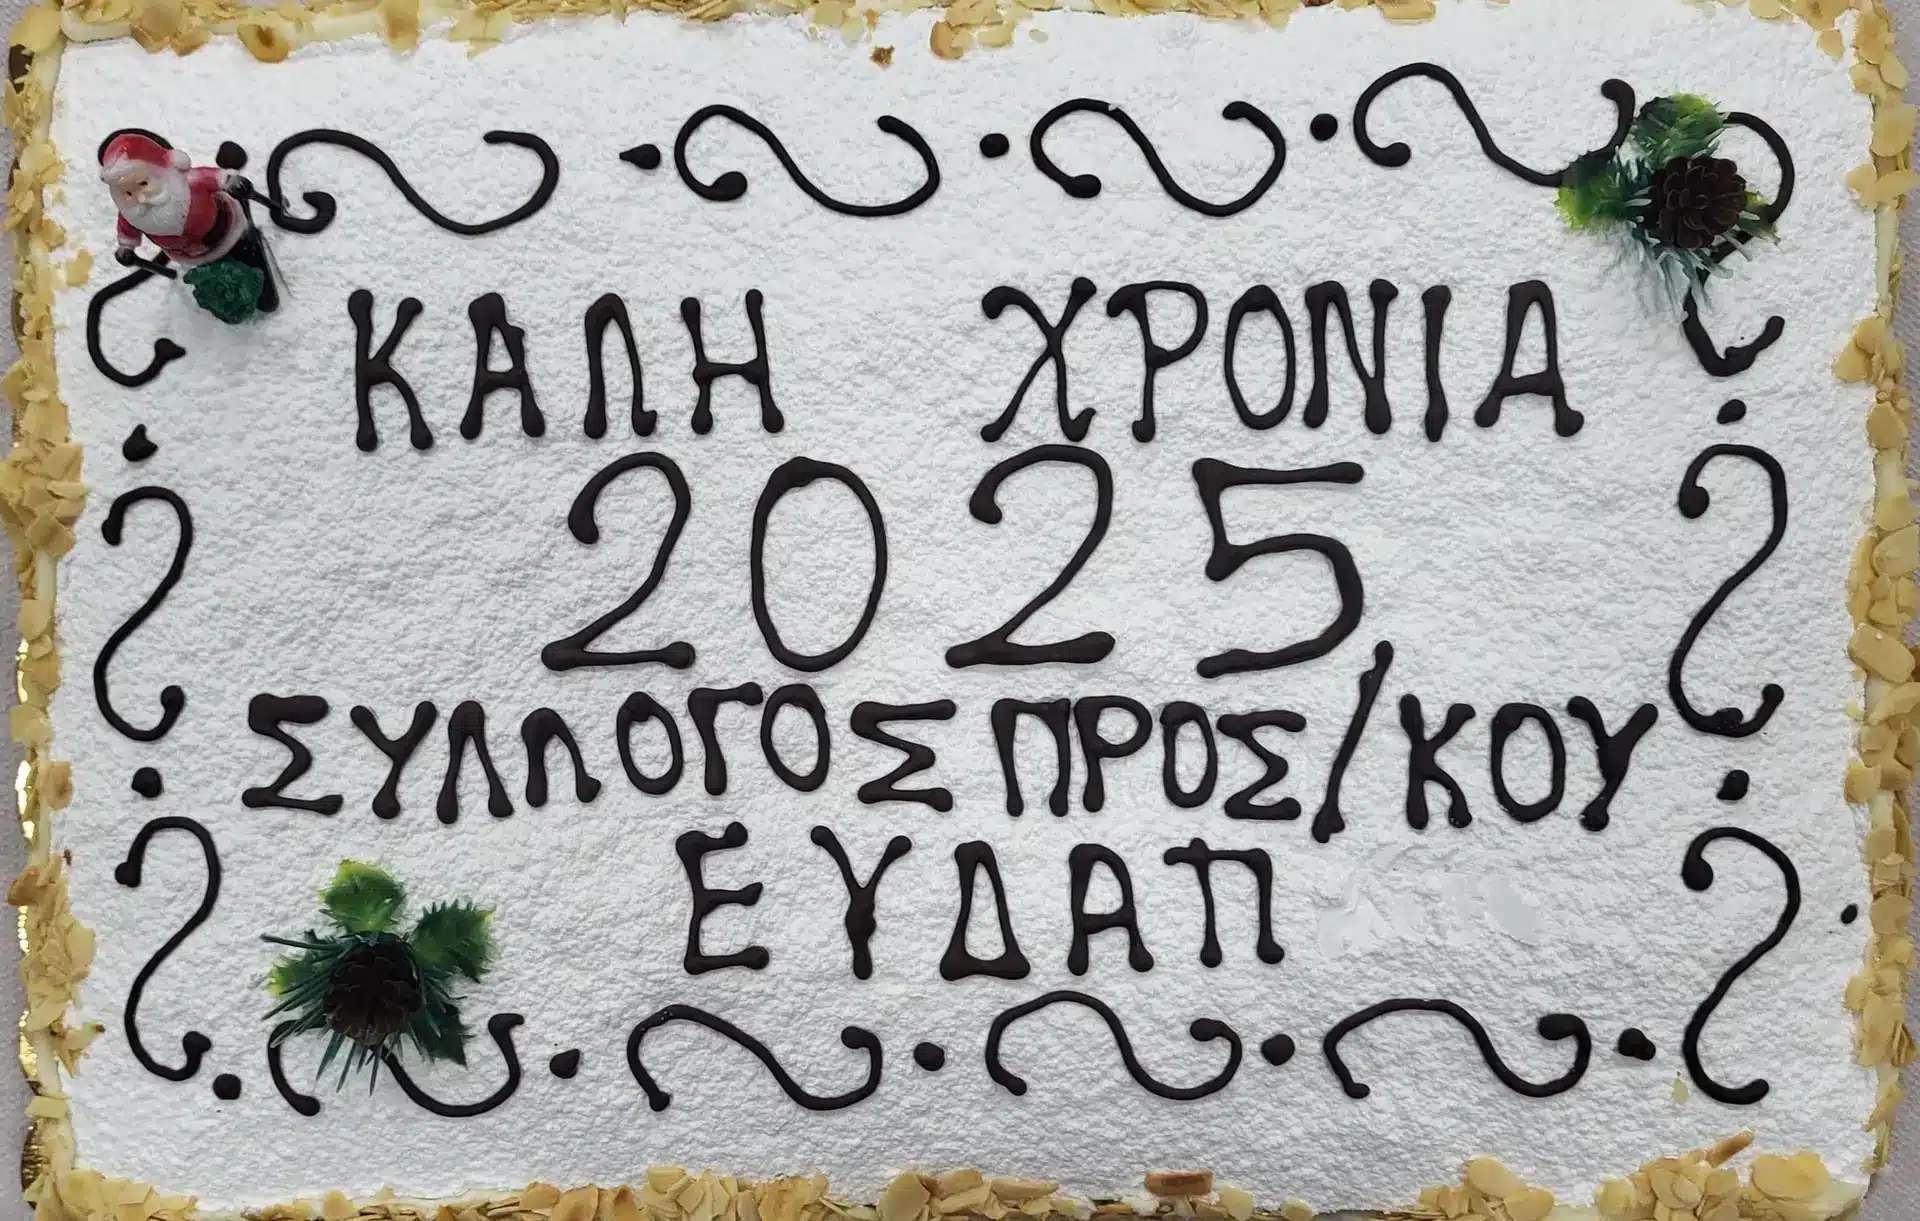 ΚΑΛΗ ΧΡΟΝΙΑ
2025
ΣΥΛΛΟΓΟΣ ΠΡΟΣ/ΚΟΥ
ΕΥΔΑΠ